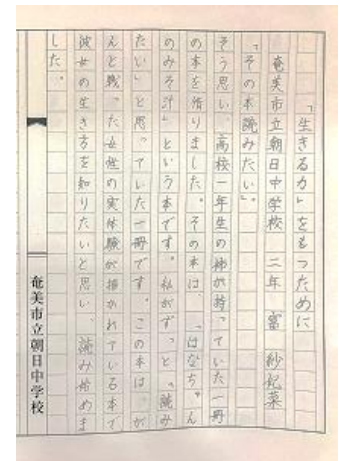 「生きる力」をもつために
奄美市立朝日中学校　二年　富　紗妃菜
「その本読みたい。」
そう思い、高校一年生の姉が持っていた一冊
の本を借りました。その本は、「はなちゃん
のみそ汁」という本です。私がずっと「読み
たい」と思っていた一冊です。この本は、が
んと戦った女性の実体験が描かれている本で
彼女の生き方を知りたいと思い、読み始めま
した。
奄美市立朝日中学校